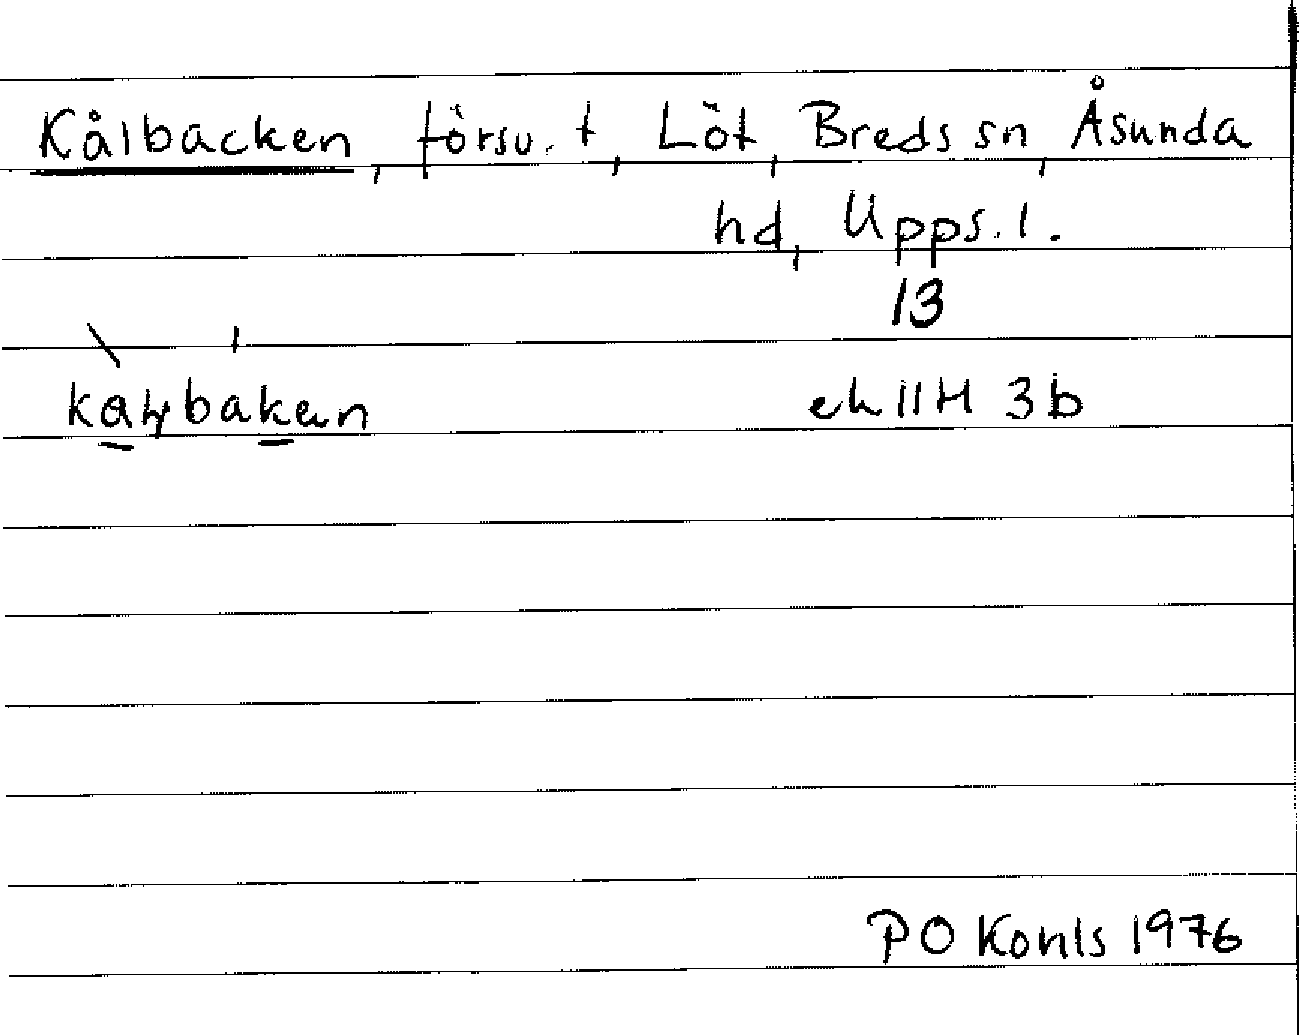 Kålbacken, försv. t, Löt, Breds sn, Åsunda
hd, Upps. l.
13
kaɬybakən
ek 11H 3b
PO Konls 1976